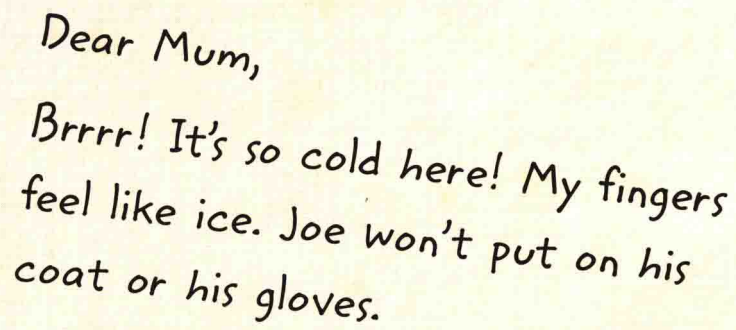 Dear Mum,
Brrrr! It's so cold here! My fingers
feel like ice. Joe won't put on his
coat or his gloves.